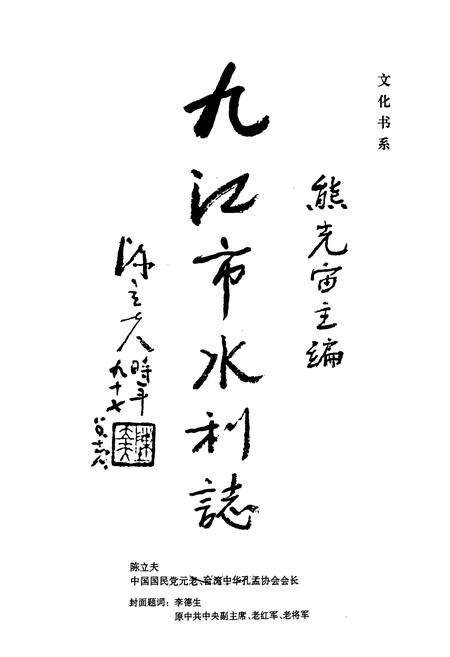 文化书系
熊光宙主编
九江市水利誌
陈立夫
時年
九十七
陈立夫
中国国民党元老、台湾中华孔孟协会会长
封面题词：李德生
原中共中央副主席、老红军、老将军